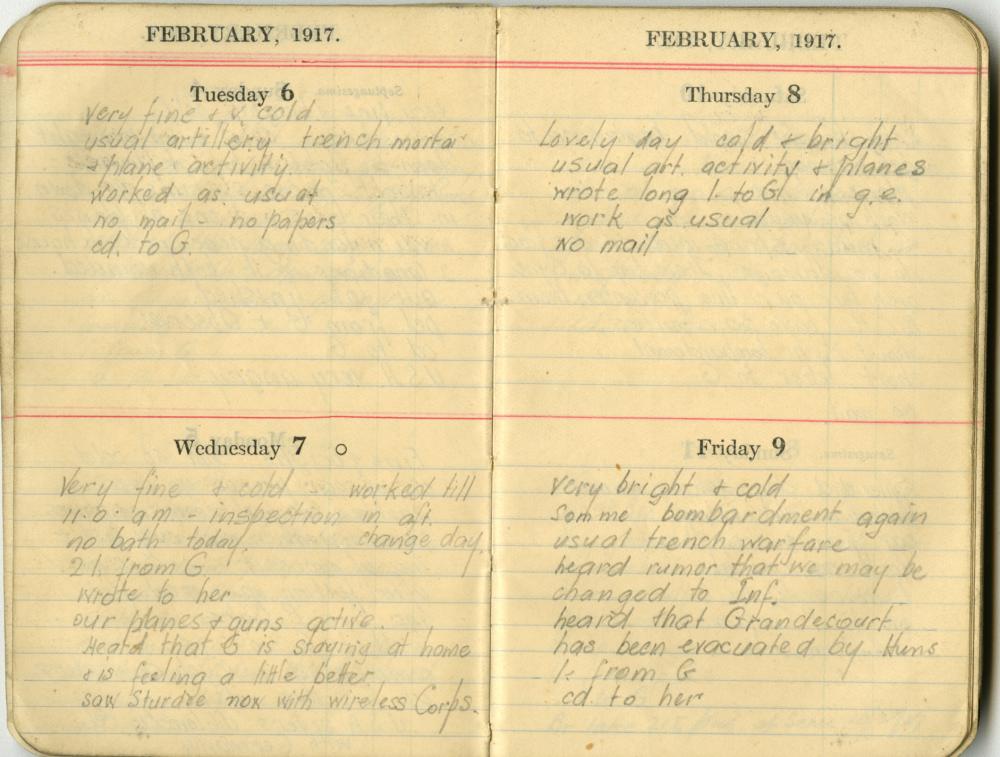 FEBRUARY, 1917.
Tuesday 6
very fine & v. cold
usual artillery trench mortar
& plane activitiy.
worked as usual
no mail - no papers
cd. to G.
Wednesday 7 o
Very fine & cold - worked till
11.0 am - inspection in aft.
no bath today. change day.
2 l. from G
wrote to her
our planes & guns active.
Heard that G is staying at home
& is feeling a little better
saw Sturdee now with wireless Corps.
FEBRUARY, 1917.
Thursday 8
Lovely day cold & bright
usual art. activity & planes
wrote long l. to G. in g.e.
work as usual
no mail
Friday 9
very bright & cold
somme bombardment again
usual trench warfare
heard rumor that we may be
changed to Inf.
heard that Grandecourt
has been evacuated by Huns
l. from G
cd. to her